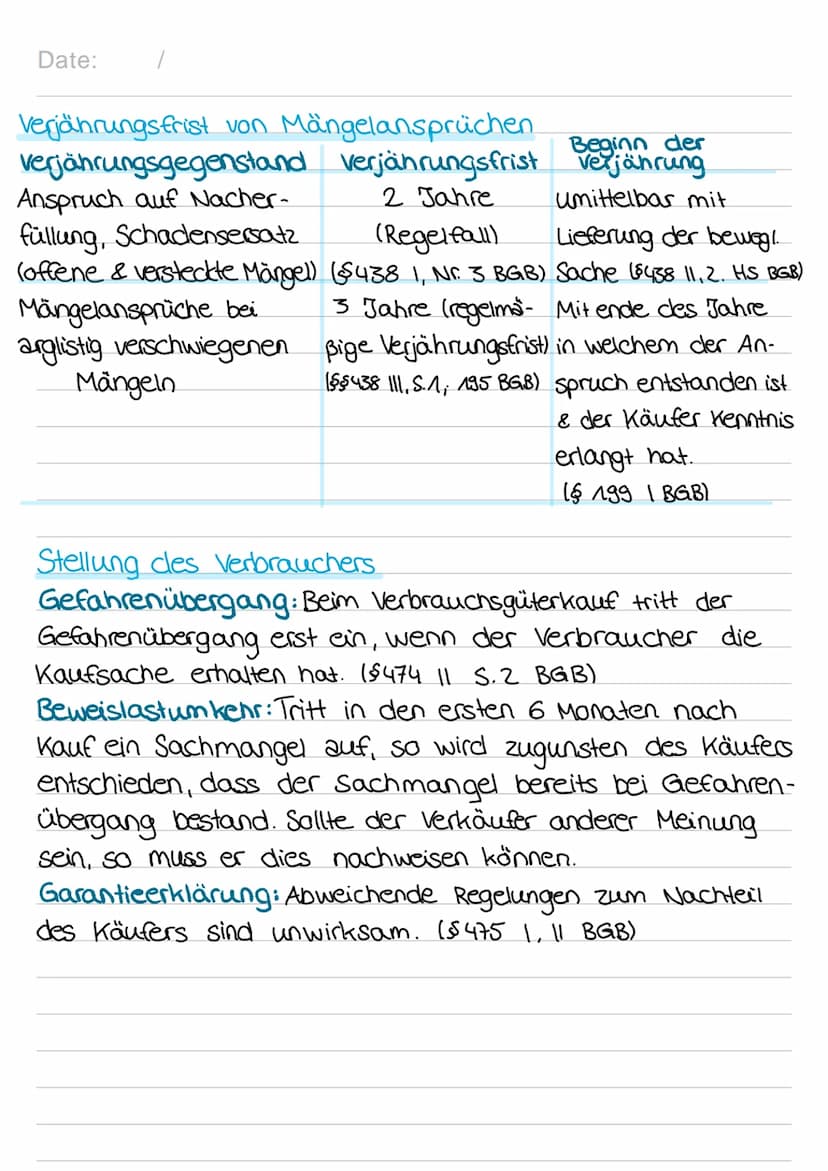 Date: /
Verjährungsfrist von Mängelansprüchen
Verjährungsgegenstand Verjährungsfrist Beginn der Verjährung
Anspruch auf Nacher- 2 Jahre umittelbar mit
füllung, Schadensersatz (Regelfall) Lieferung der bewegl.
(offene & versteckte Mängel) (§438 I, Nr. 3 BGB) Sache (§438 II, 2. HS BGB)
Mängelansprüche bei 3 Jahre (regelmä- Mit ende des Jahre
arglistig verschwiegenen ßige Verjährungsfrist) in welchem der An-
Mängeln (§§438 III, S.1, 195 BGB) spruch entstanden ist
& der Käufer Kenntnis
erlangt hat.
(§ 199 I BGB)
Stellung des Verbrauchers
Gefahrenübergang: Beim Verbrauchsgüterkauf tritt der
Gefahrenübergang erst ein, wenn der Verbraucher die
Kaufsache erhalten hat. (§474 II S.2 BGB)
Beweislastumkehr: Tritt in den ersten 6 Monaten nach
Kauf ein Sachmangel auf, so wird zugunsten des Käufers
entschieden, dass der Sachmangel bereits bei Gefahren-
übergang bestand. Sollte der Verkäufer anderer Meinung
sein, so muss er dies nachweisen können.
Garantieerklärung: Abweichende Regelungen zum Nachteil
des Käufers sind unwirksam. (§475 I, II BGB)